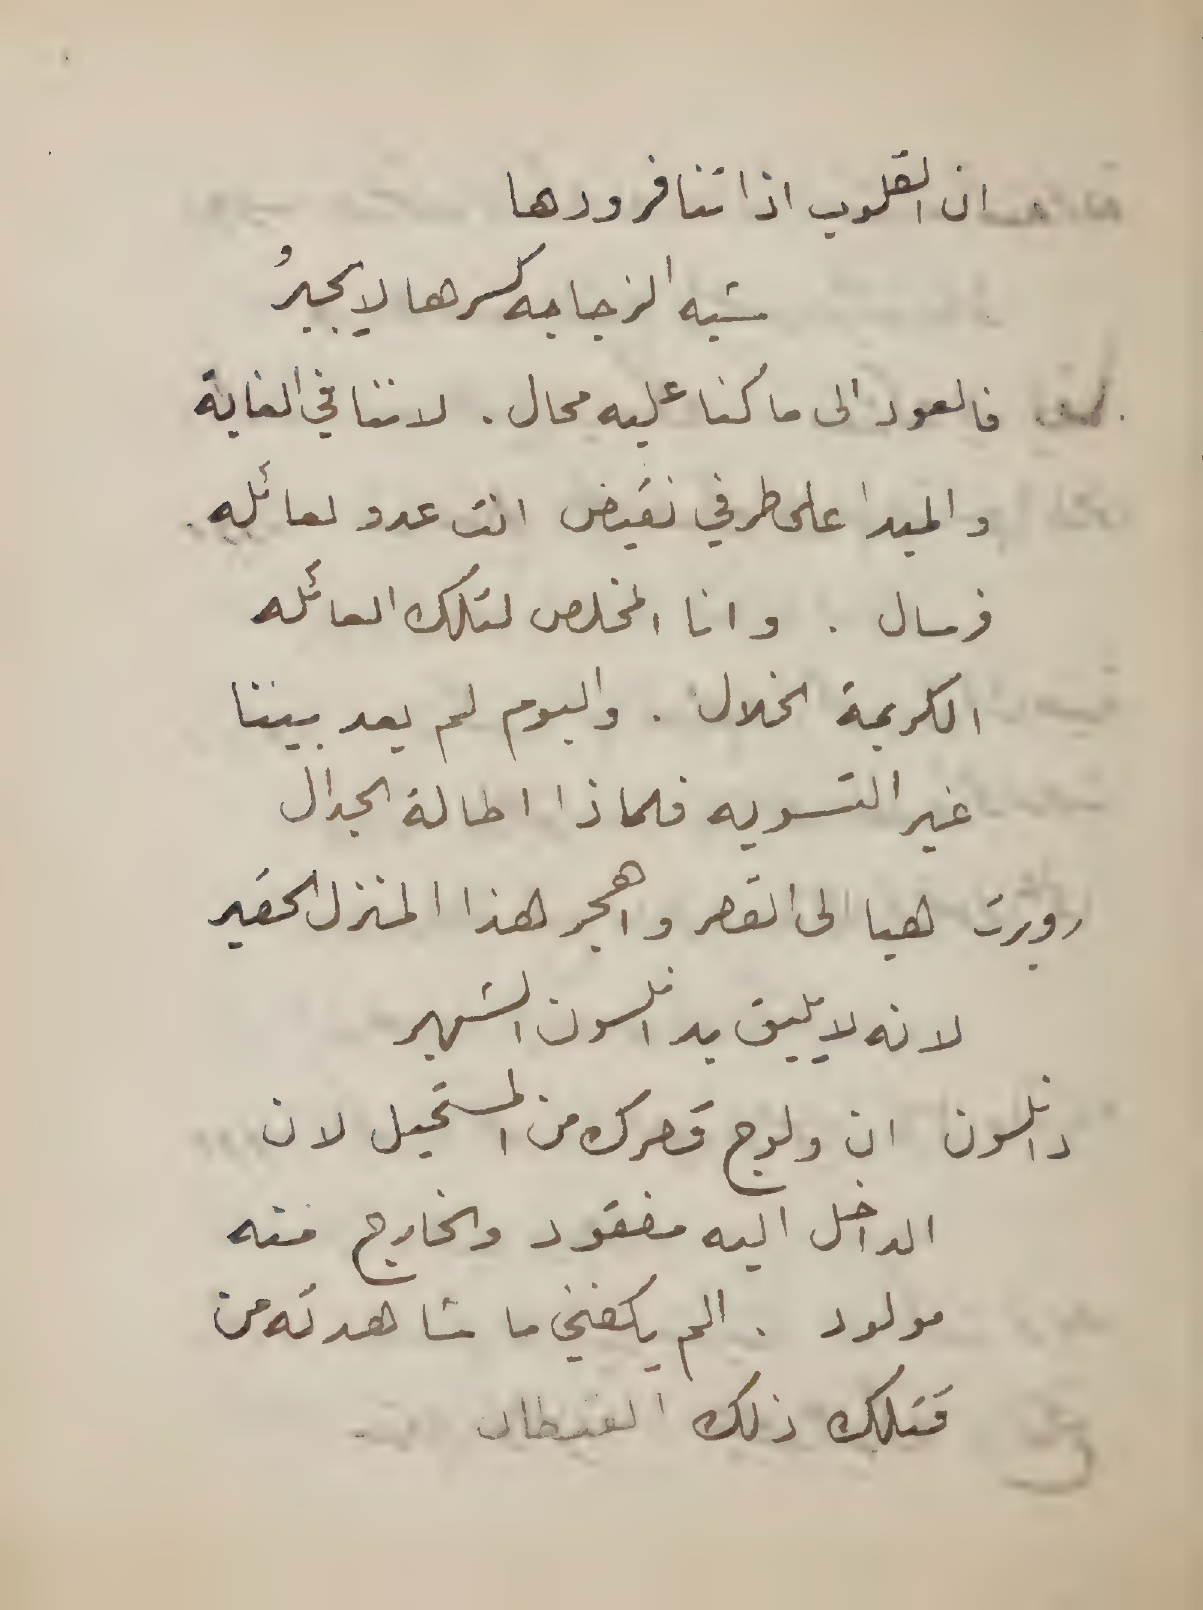 ان القلوب اذا تنافر ودها
شبه الزجاجه كسرها لا يجبرُ
فالعود الى ما كنا عليه محال . لاننا في الغاية
والمبدا على طرفي نقيض انت عدو لعائله
فرسال . وانا المخلص لتلك العائله
الكريمة الخلال . واليوم لم يعد بيننا
غير التسويه فلماذا اطالة الجدال
روبرت هيا الى القصر واهجر هذا المنزل الحقير
لانه لا يليق بدانلسون الشهير
دانلسون ان ولوج قصرك من المستحيل لان
الداخل اليه مفقود والخارج منه
مولود . الم يكفني ما شاهدته من
قتلك ذلك